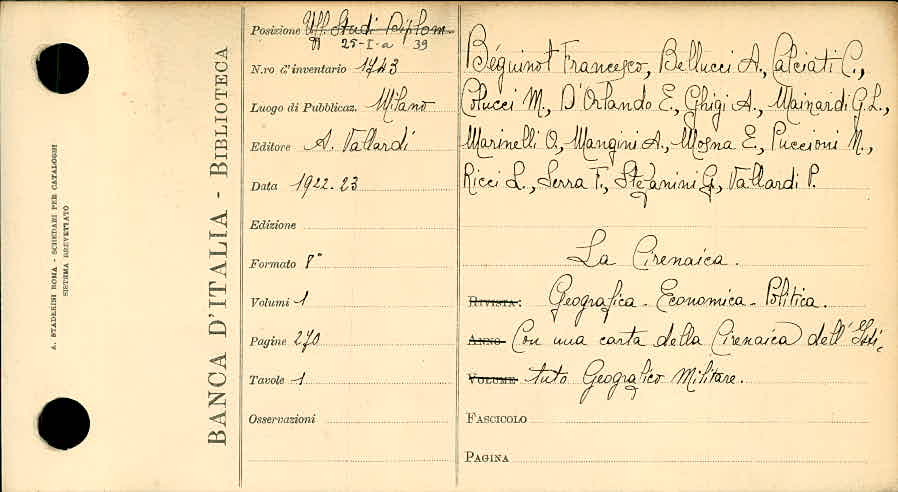 A. STADERINI ROMA - SCHEDARI PER CATALOGHI
SISTEMA BREVETTATO
BANCA D'ITALIA - BIBLIOTECA
Posizione Uff. Studi Diplom.
25-I-a 39
N.ro d'inventario 1743
Luogo di Pubblicaz. Milano
Editore A. Vallardi
Data 1922-23
Edizione
Formato 8°
Volumi 1
Pagine 270
Tavole 1
Osservazioni
Béguinot Francesco, Bellucci A., Calciati C.,
Colucci M., D'Orlando E., Ghigi A., Mainardi G.L.,
Marinelli O., Mangini A., Mosna E., Puccioni N.,
Ricci L., Serra F., Stefanini G., Vallardi P.
La Cirenaica.
RIVISTA: Geografica - Economica - Politica.
ANNO Con una carta della Cirenaica dell'Isti-
VOLUME tuto Geografico Militare.
FASCICOLO
PAGINA